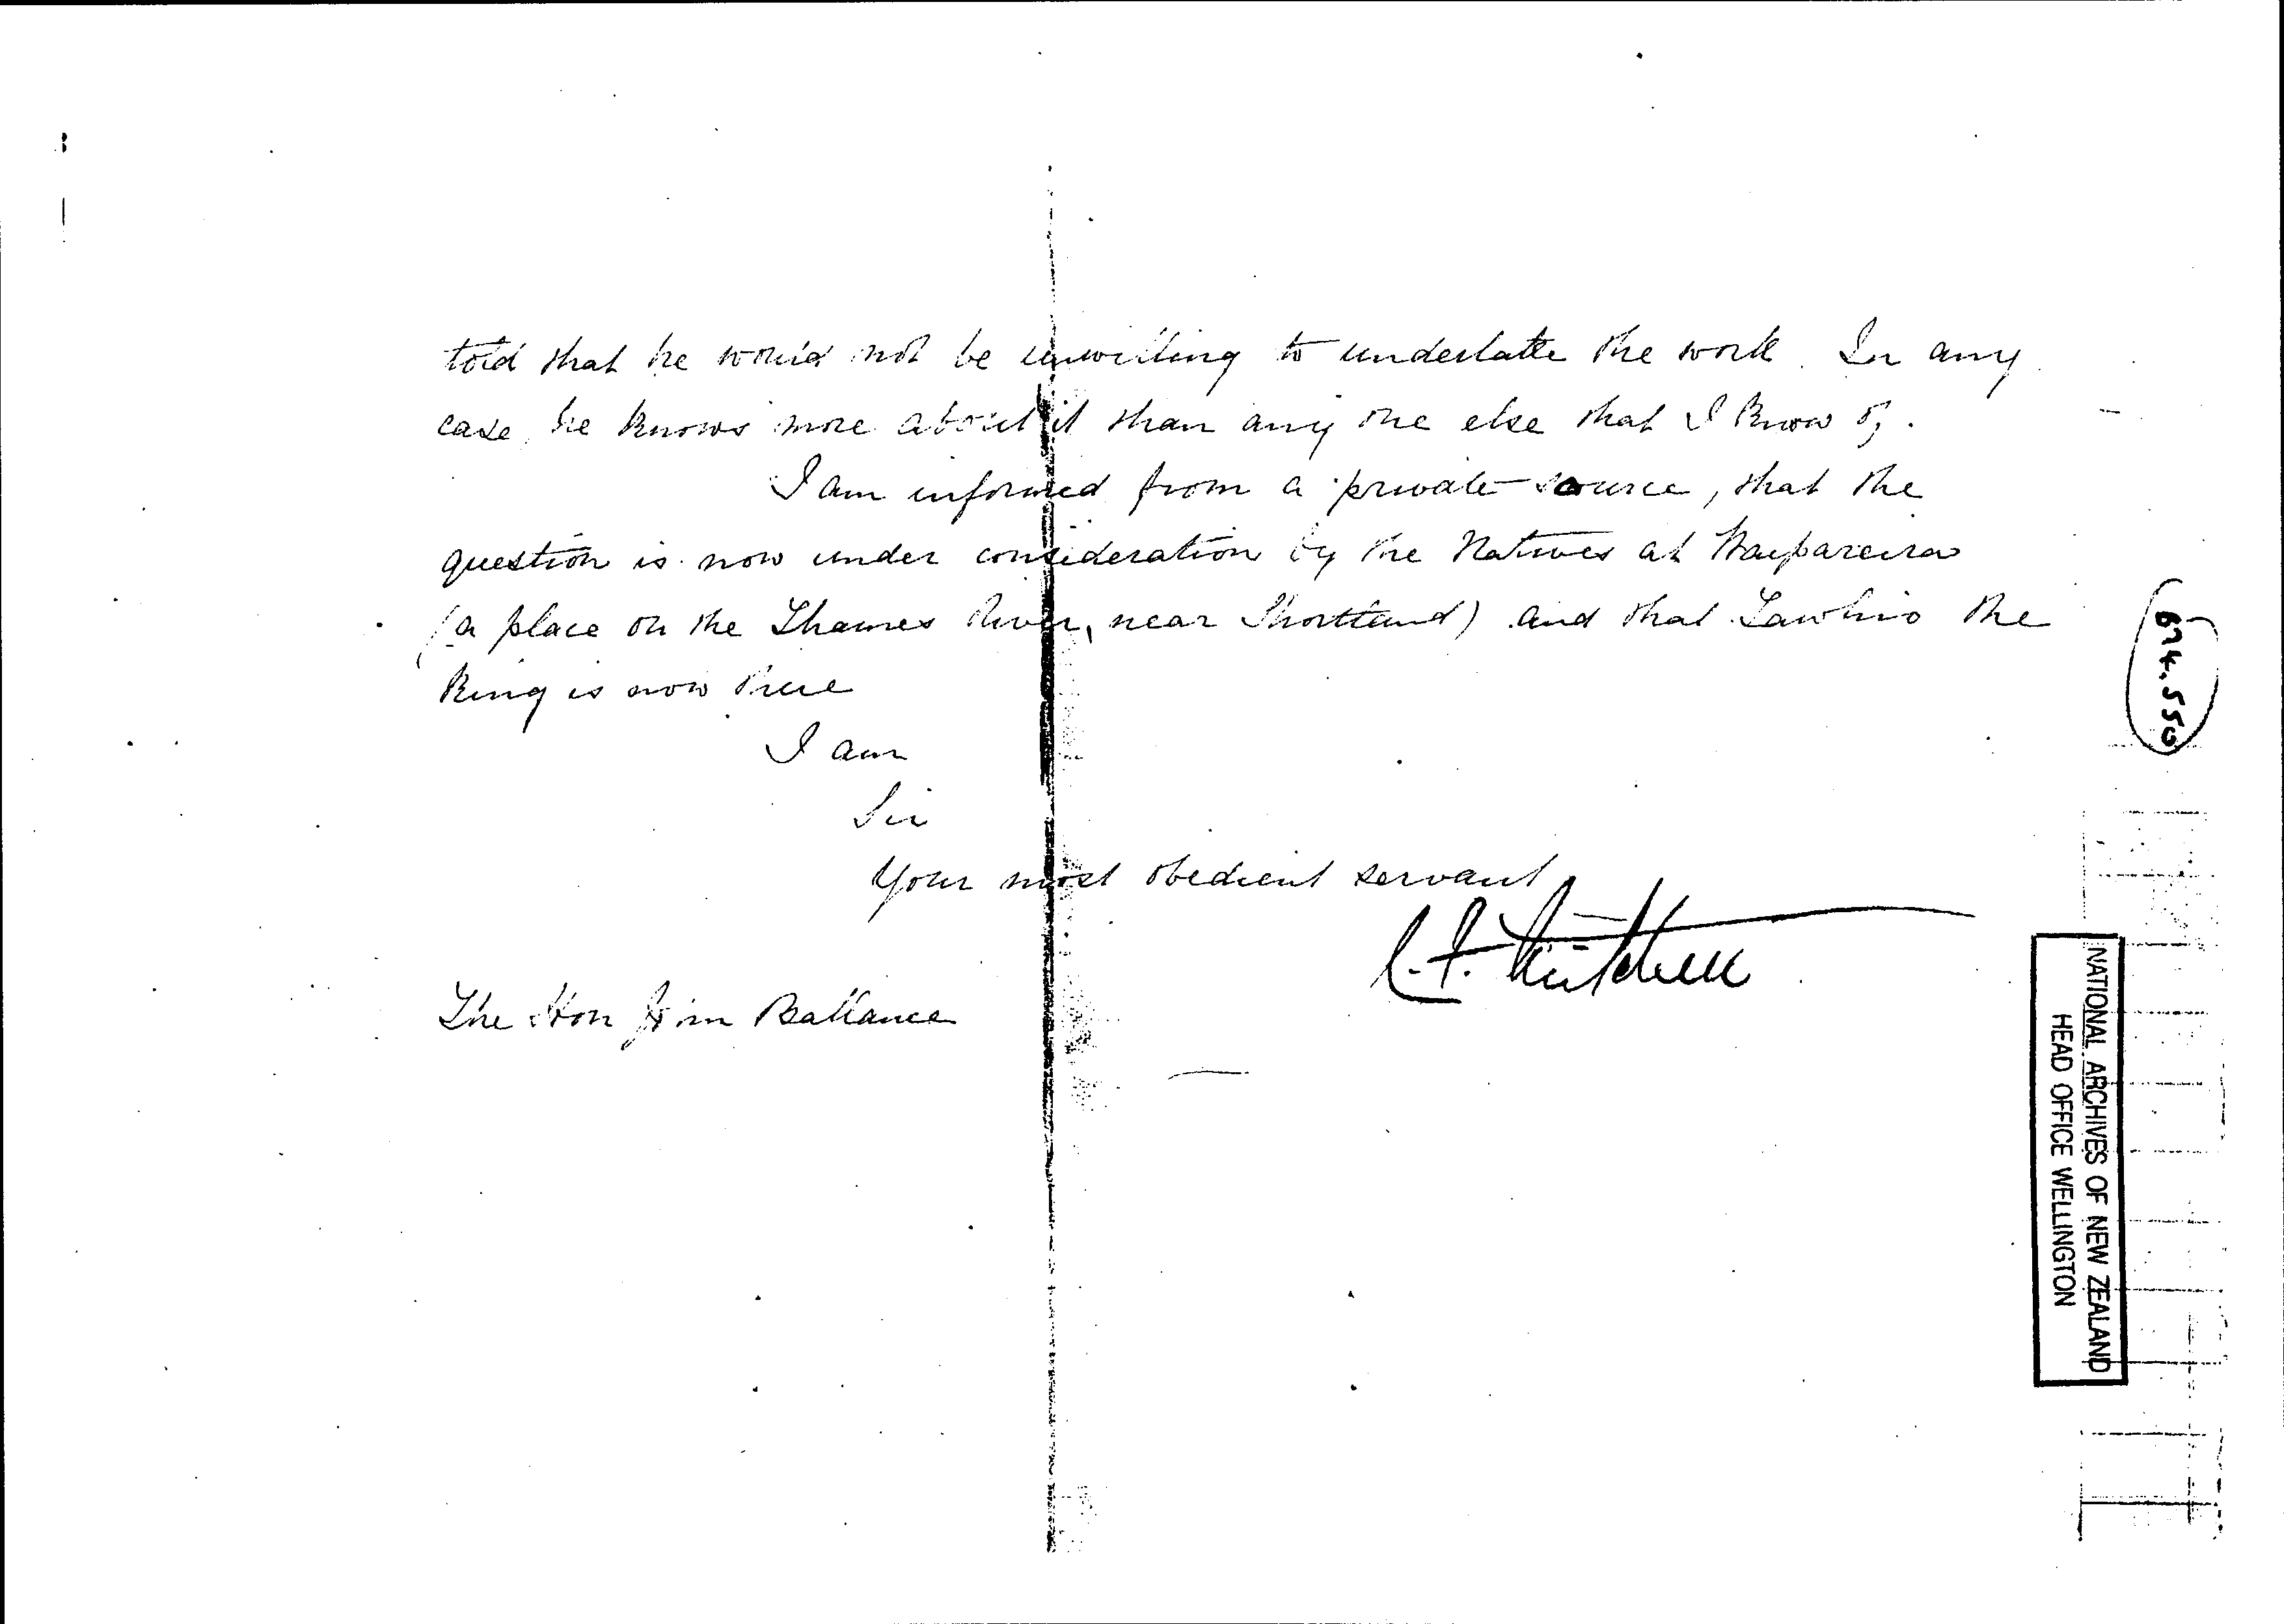 told that he would not be unwilling to undertake the work. In any
case, he knows more about it than any one else that I know of.
I am informed from a private source, that the
question is now under consideration by the Natives at Waipareira
(a place on the Thames River, near Shortland) and that Tawhio the
King is now there
I am
Sir
Your most obedient servant
C. F. Mitchell
The Hon Ballance
674.550
NATIONAL ARCHIVES OF NEW ZEALAND
HEAD OFFICE WELLINGTON